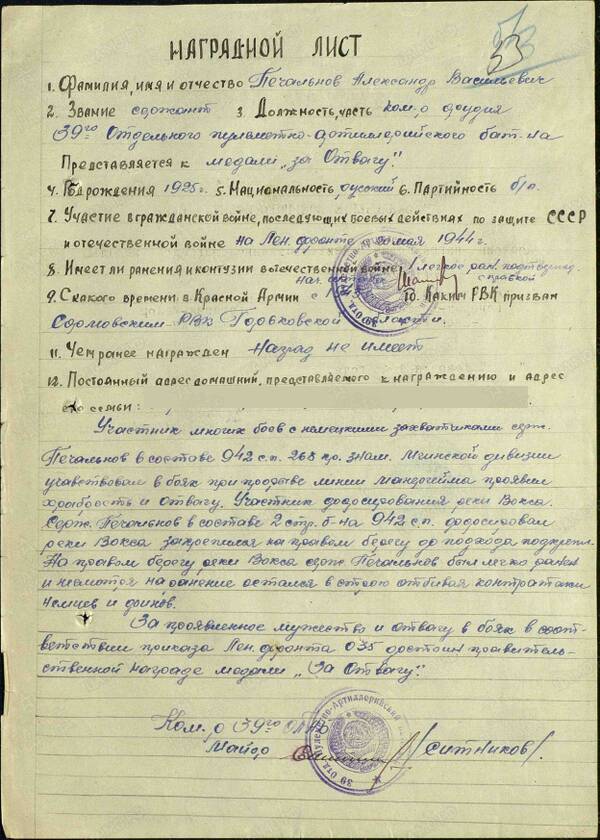 53
НАГРАДНОЙ ЛИСТ
1. Фамилия, имя и отчество Печальнов Александр Васильевич
2. Звание сержант 3. Должность, часть ком-р орудия
39го Отдельного пулеметно-артиллерийского бат-на
Представляется к медали „За Отвагу".
4. Год рождения 1925 г. 5. Национальность русский 6. Партийность б/п.
7. Участие в гражданской войне, последующих боевых действиях по защите СССР
и отечественной войне на Лен. фронте с мая 1944 г.
8. Имеет ли ранения и контузии в отечественной войне 1 легкое ран. подтвержд. справкой
9. С какого времени в Красной Армии с 10. Каким РВК призван
Сормовским РВК Горьковской области.
11. Чем ранее награжден Наград не имеет
12. Постоянный адрес домашний, представляемого к награждению и адрес
его семьи:
Участник многих боев с немецкими захватчиками серж.
Печальнов в составе 942 с.п. 268 кр. знам. Мгинской дивизии
участвовал в боях при прорыве линии Мандргейма проявил
храбрость и отвагу. Участник форсирования реки Вокса.
Серж. Печальнов в составе 2 стр. б-на 942 с.п. форсировал
реки Вокса закрепился на правом берегу до подхода подкрепл.
На правом берегу реки Вокса серж. Печальнов был легко ранен
и несмотря на ранение остался в строю отбивая контратаки
немцев и финов.
За проявленное мужество и отвагу в боях в соот-
ветствии приказа Лен. фронта 035 достоин правитель-
ственной награде медали „За Отвагу".
Ком-р 39го ОПАБ
Майор /Ситников/
39 Отд. Пулеметно-Артиллерийский